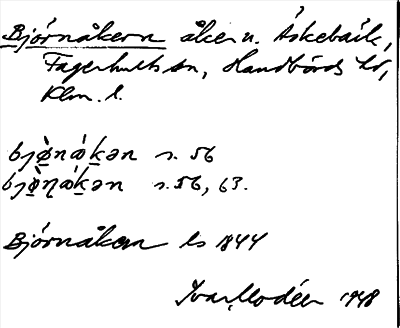 Björnåkern åker n. Askebäck,
Fagerhults sn, Handbörds hd,
Klm. l.
bjø̀nåkən s. 56
bjø̀n̥åkən s. 56, 63.
Björnåkern ls 1844
Ivar Modéer 1948